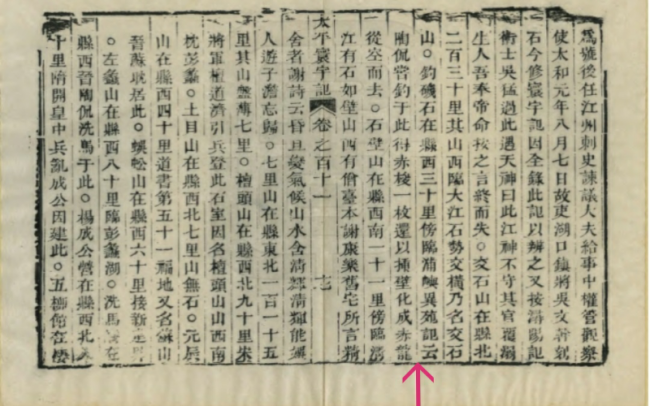 爲難後任江州刺史諫議大夫給事中權管觀察
使太和元年八月七日故吏湖口鎮將吳文幹刻
石今修寰宇記因全錄此記以辨之又按潯陽記
術士吳猛過此遇天神曰此江神不守其官覆溺
生人吾奉帝命按之言終而失○交石山在縣北
二百三十里其山西臨大江石勢交橫乃名交石
山○釣磯石在縣西三十里傍臨異苑記云
陶侃嘗釣于此得赤梭一枚還以挿壁化成赤龍
從空而去○石壁山在縣西南一十一里傍臨
江有石如壁山西有僧臺本謝康樂舊宅所言精
太平寰宇記 卷之百十一
舍者謝詩云昏旦變氣候山水含清輝清輝能娛
人遊子澹忘歸○七里山在縣東北一百一十五
里其山盤薄七里○檀頭山在縣西北九十里宋
將軍檀道濟引兵登此石室因名檀頭山山西南
枕彭蠡○土目山在縣西北七里山無石○元辰
山在縣西四十里道書第五十一福地又名蘇山
晉蘇耽居此○蜈蚣山在縣西六十里接新
○左蠡山在縣西八十里臨彭蠡湖○洗馬在
縣西晉陶侃洗馬于此○楊成公營在縣西北
十里隋開皇中兵亂成公因建此○五柳館在